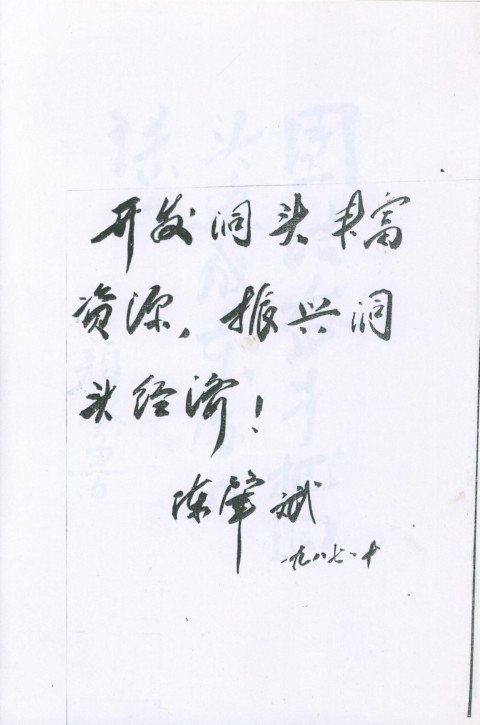 开发洞头丰富
资源,振兴洞
头经济!
陈肇斌
一九八七·十